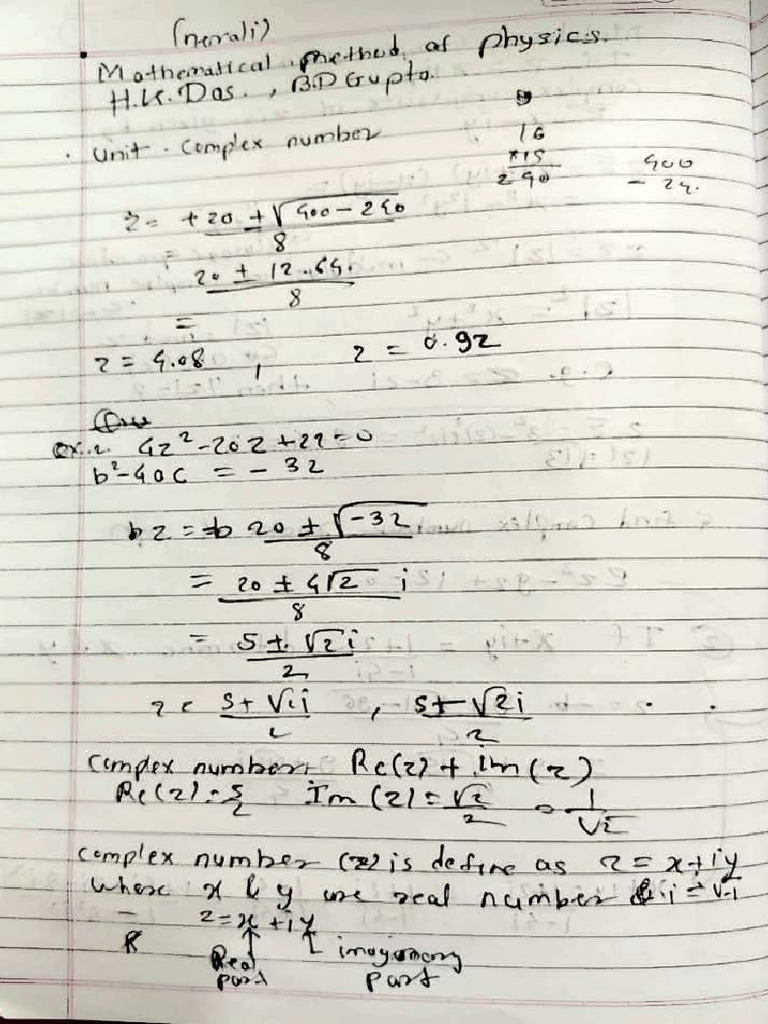 (nerali)
Mathematical method of physics.
H.K. Das., B.D Gupta.
. Unit . Complex number
16
×15
240
400
- 24.
z = +20 ± √400 - 240
8
20 ± 12.64.
8
=
z = 4.08 , z = 0.92
ex.2. 4z² - 20z + 27 = 0
b² - 4ac = - 32
z = 20 ± √-32
8
= 20 ± 4√2 i
8
= 5 ± √2 i
2
z = 5 + √2 i , 5 - √2 i
2 2
Complex number Re(z) + im(z)
Re(z) = 5/2 Im(z) = √2/2 = 1/√2
complex number (z) is define as z = x + iy
whose x & y are real number & i = √-1
z = x + iy
Real part
imagionary part